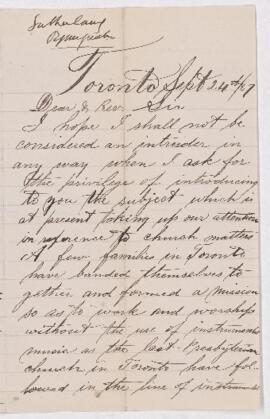 Sutherland
Toronto Sept 24th/87
Dear & Rev. Sir
I hope I shall not be
considered an intruder in
any way when I ask for
the privilege of introducing
to you the subject which is
at present taking up our attention
in reference to church matters
A few families in Toronto
have banded themselves to-
gether and formed a mission
so as to work and worship
without the use of instrumental
music as the last Presbyterian
church in Toronto have fol-
lowed in the line of instrumental